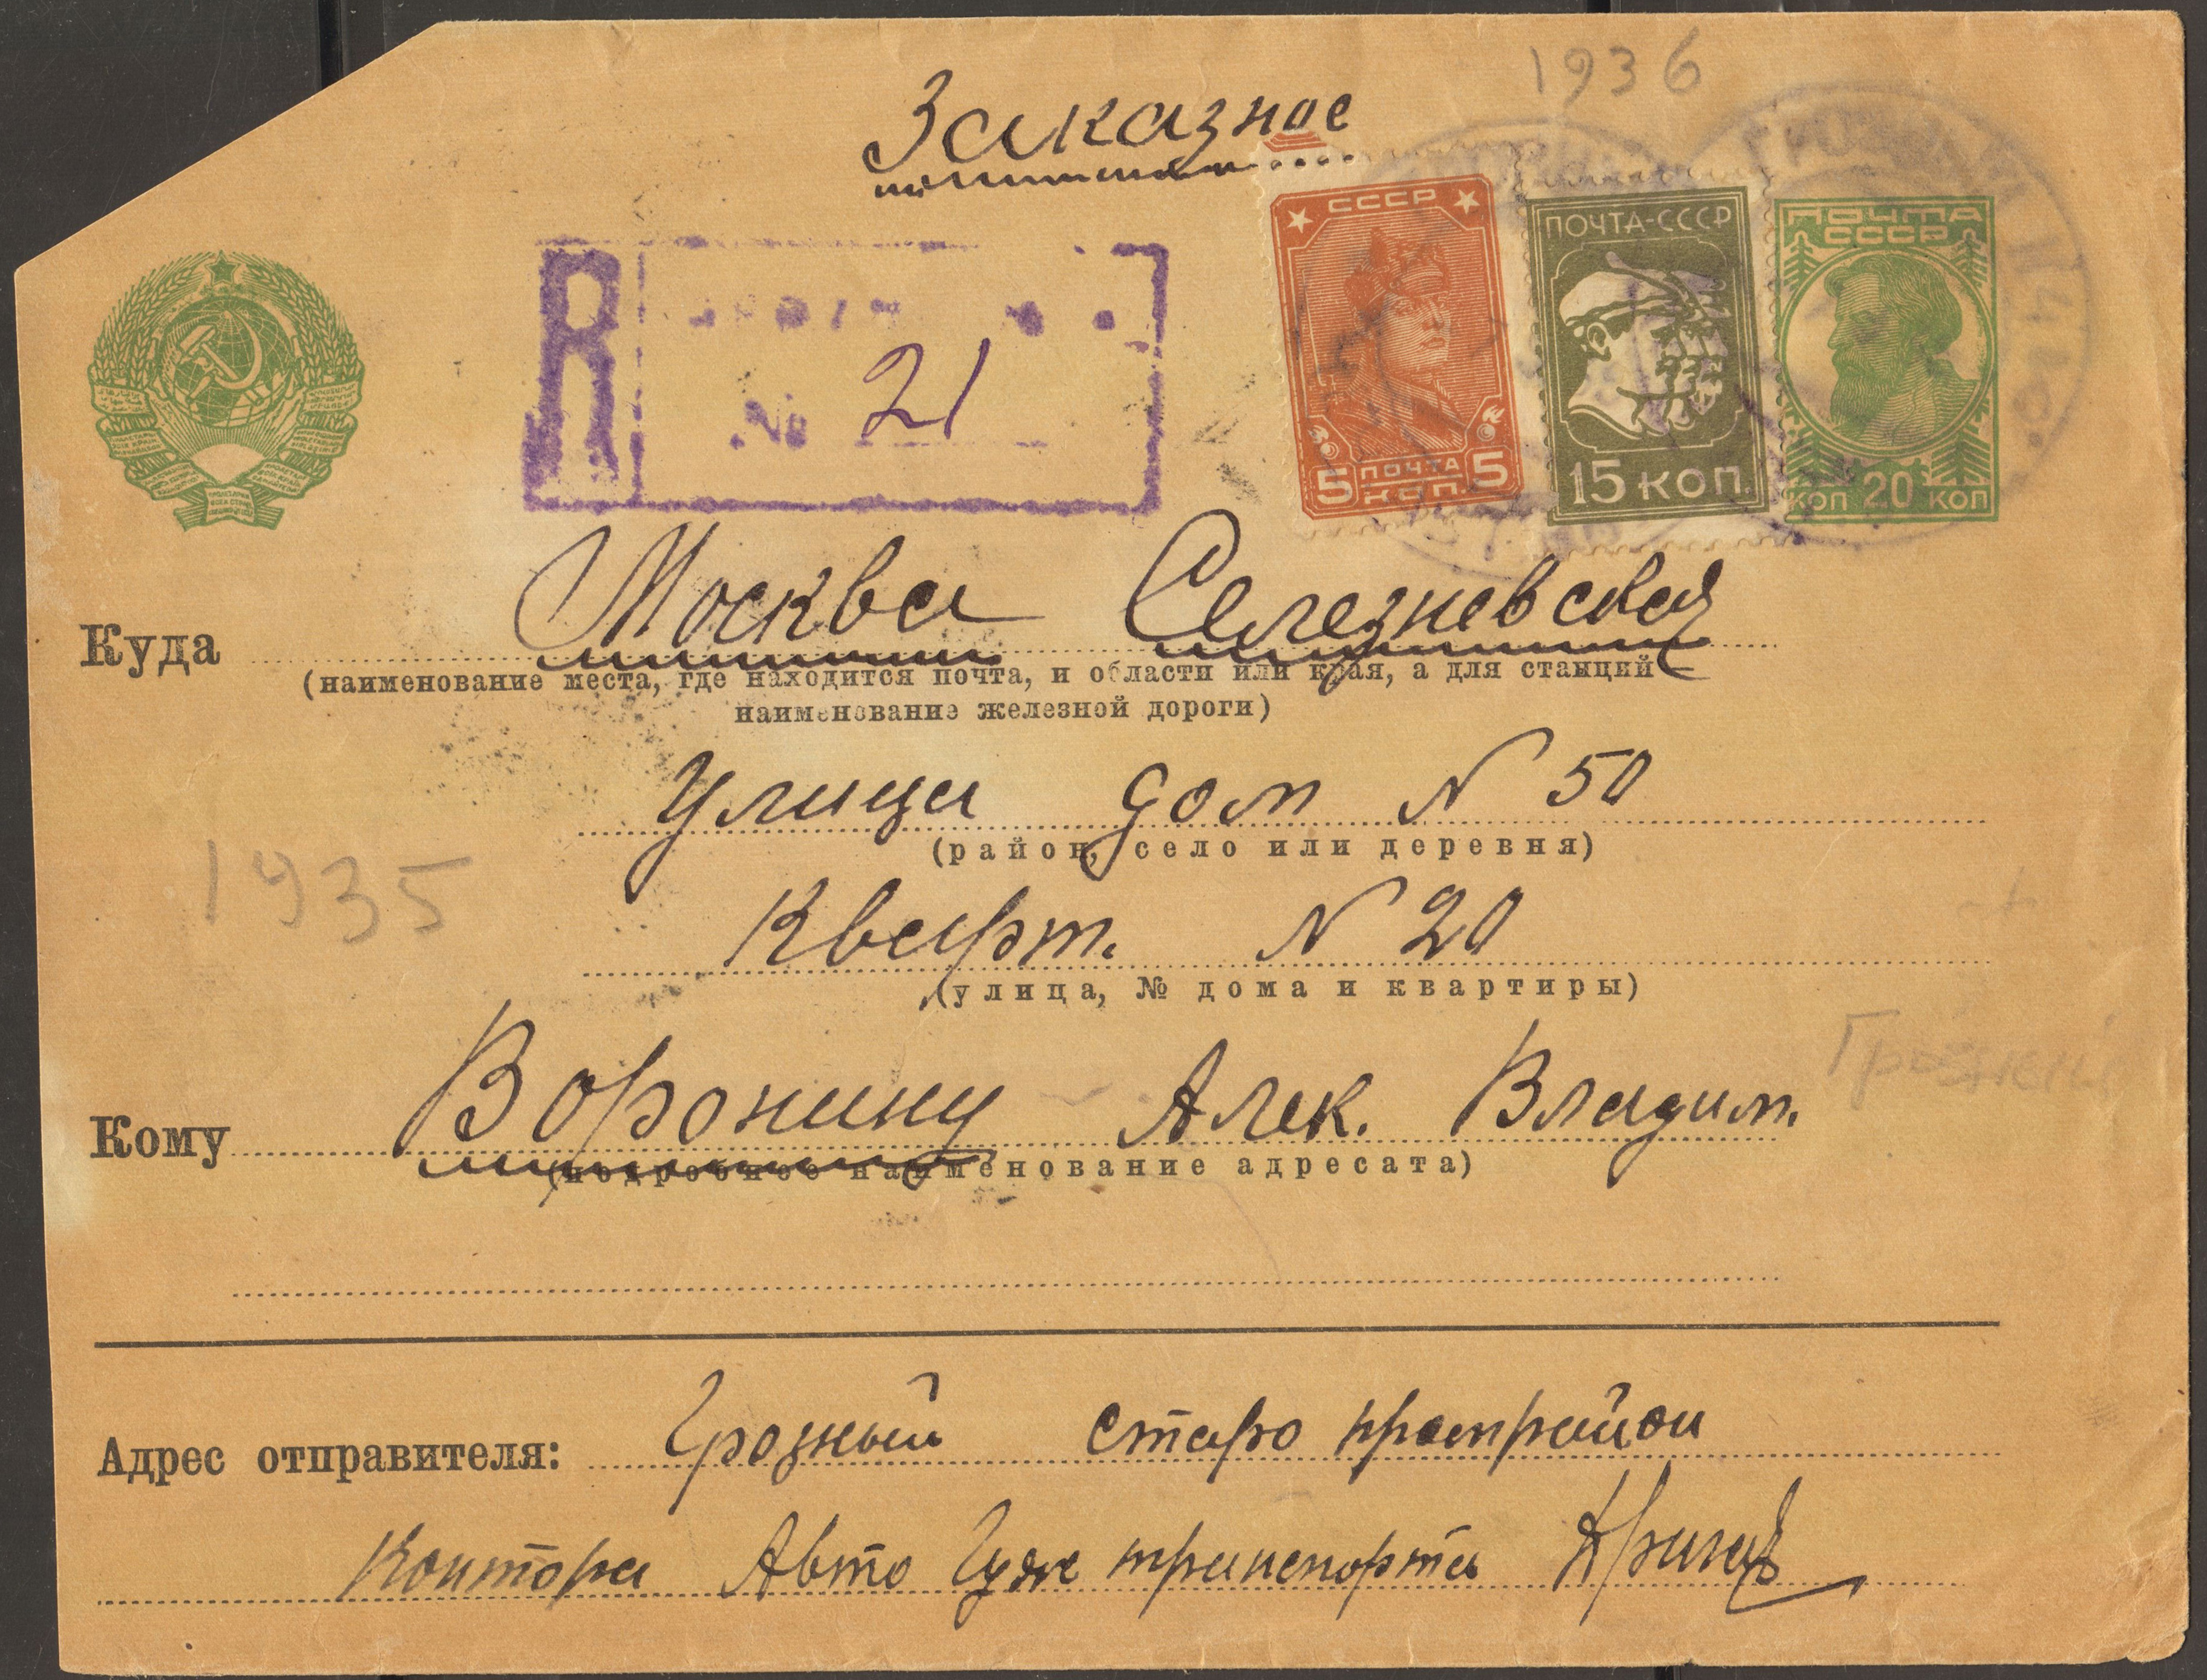 1936
Заказное
СССР
5 ПОЧТА 5
КОП.
ПОЧТА-СССР
15 КОП.
ПОЧТА
СССР
КОП 20 КОП
R
№ 21
Куда Москва Селезневская
(наименование места, где находится почта, и области или края, а для станций
наименование железной дороги)
Улица дом N 50
(район, село или деревня)
1935
Кварт. N 20
(улица, № дома и квартиры)
Грозный
Кому Воронину Алек. Владим.
(подробное наименование адресата)
Адрес отправителя: Грозный Старо промрайон
Контора Авто Гуж транспорта